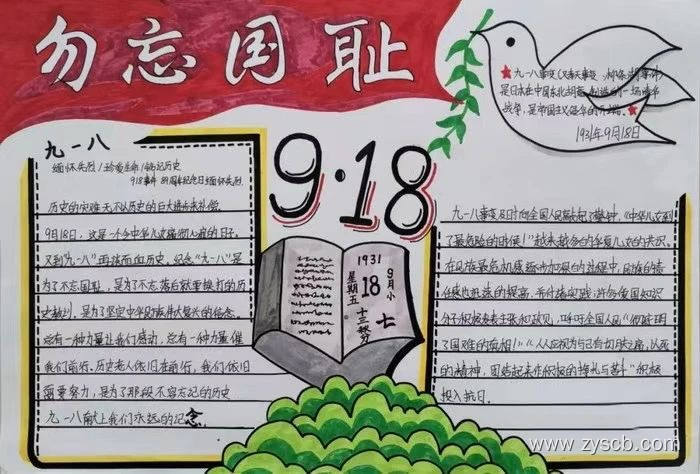 勿忘国耻
★九一八事变(又称奉天事变、柳条湖事件)
是日本在中国东北
战争,是帝国主义侵华的开端。★
1931年9月18日
九一八
缅怀先烈/珍爱生命/铭记历史
918事件 89周年纪念日缅怀先烈
9·18
历史的灾难无不以历史的巨大进步来礼偿。
9月18日,这是一个令中华儿女痛彻心扉的日子。
又到"九一八"再读血历史。纪念"九一八"是
为了不忘国耻,是为了不忘落后就要挨打的历
史教训,是为了坚定中华民族伟大复兴的信念。
总有一种力量让我们感动,总有一种力量催
我们前行。历史老人依旧在前行,我们依旧
需要努力,是为了那段不容忘记的历史
九一八献上我们永远的纪念。
1931
9月小
18
星期五
十三秋分
七
九一八事变及时向全国人民敲起了警钟,《中华儿女到
了最危险的时候!》越来越多的华夏儿女的共识。
在民族最危机感逐步加强的过程中,民族的情
分子积极发表主张和政见,呼吁全国人民"
了国难的真相!""人人应视为与己有切肤之痛,以死
的精神,团结起来作积极的挣扎与苦斗"积极
投入抗日。
www.zyscb.com